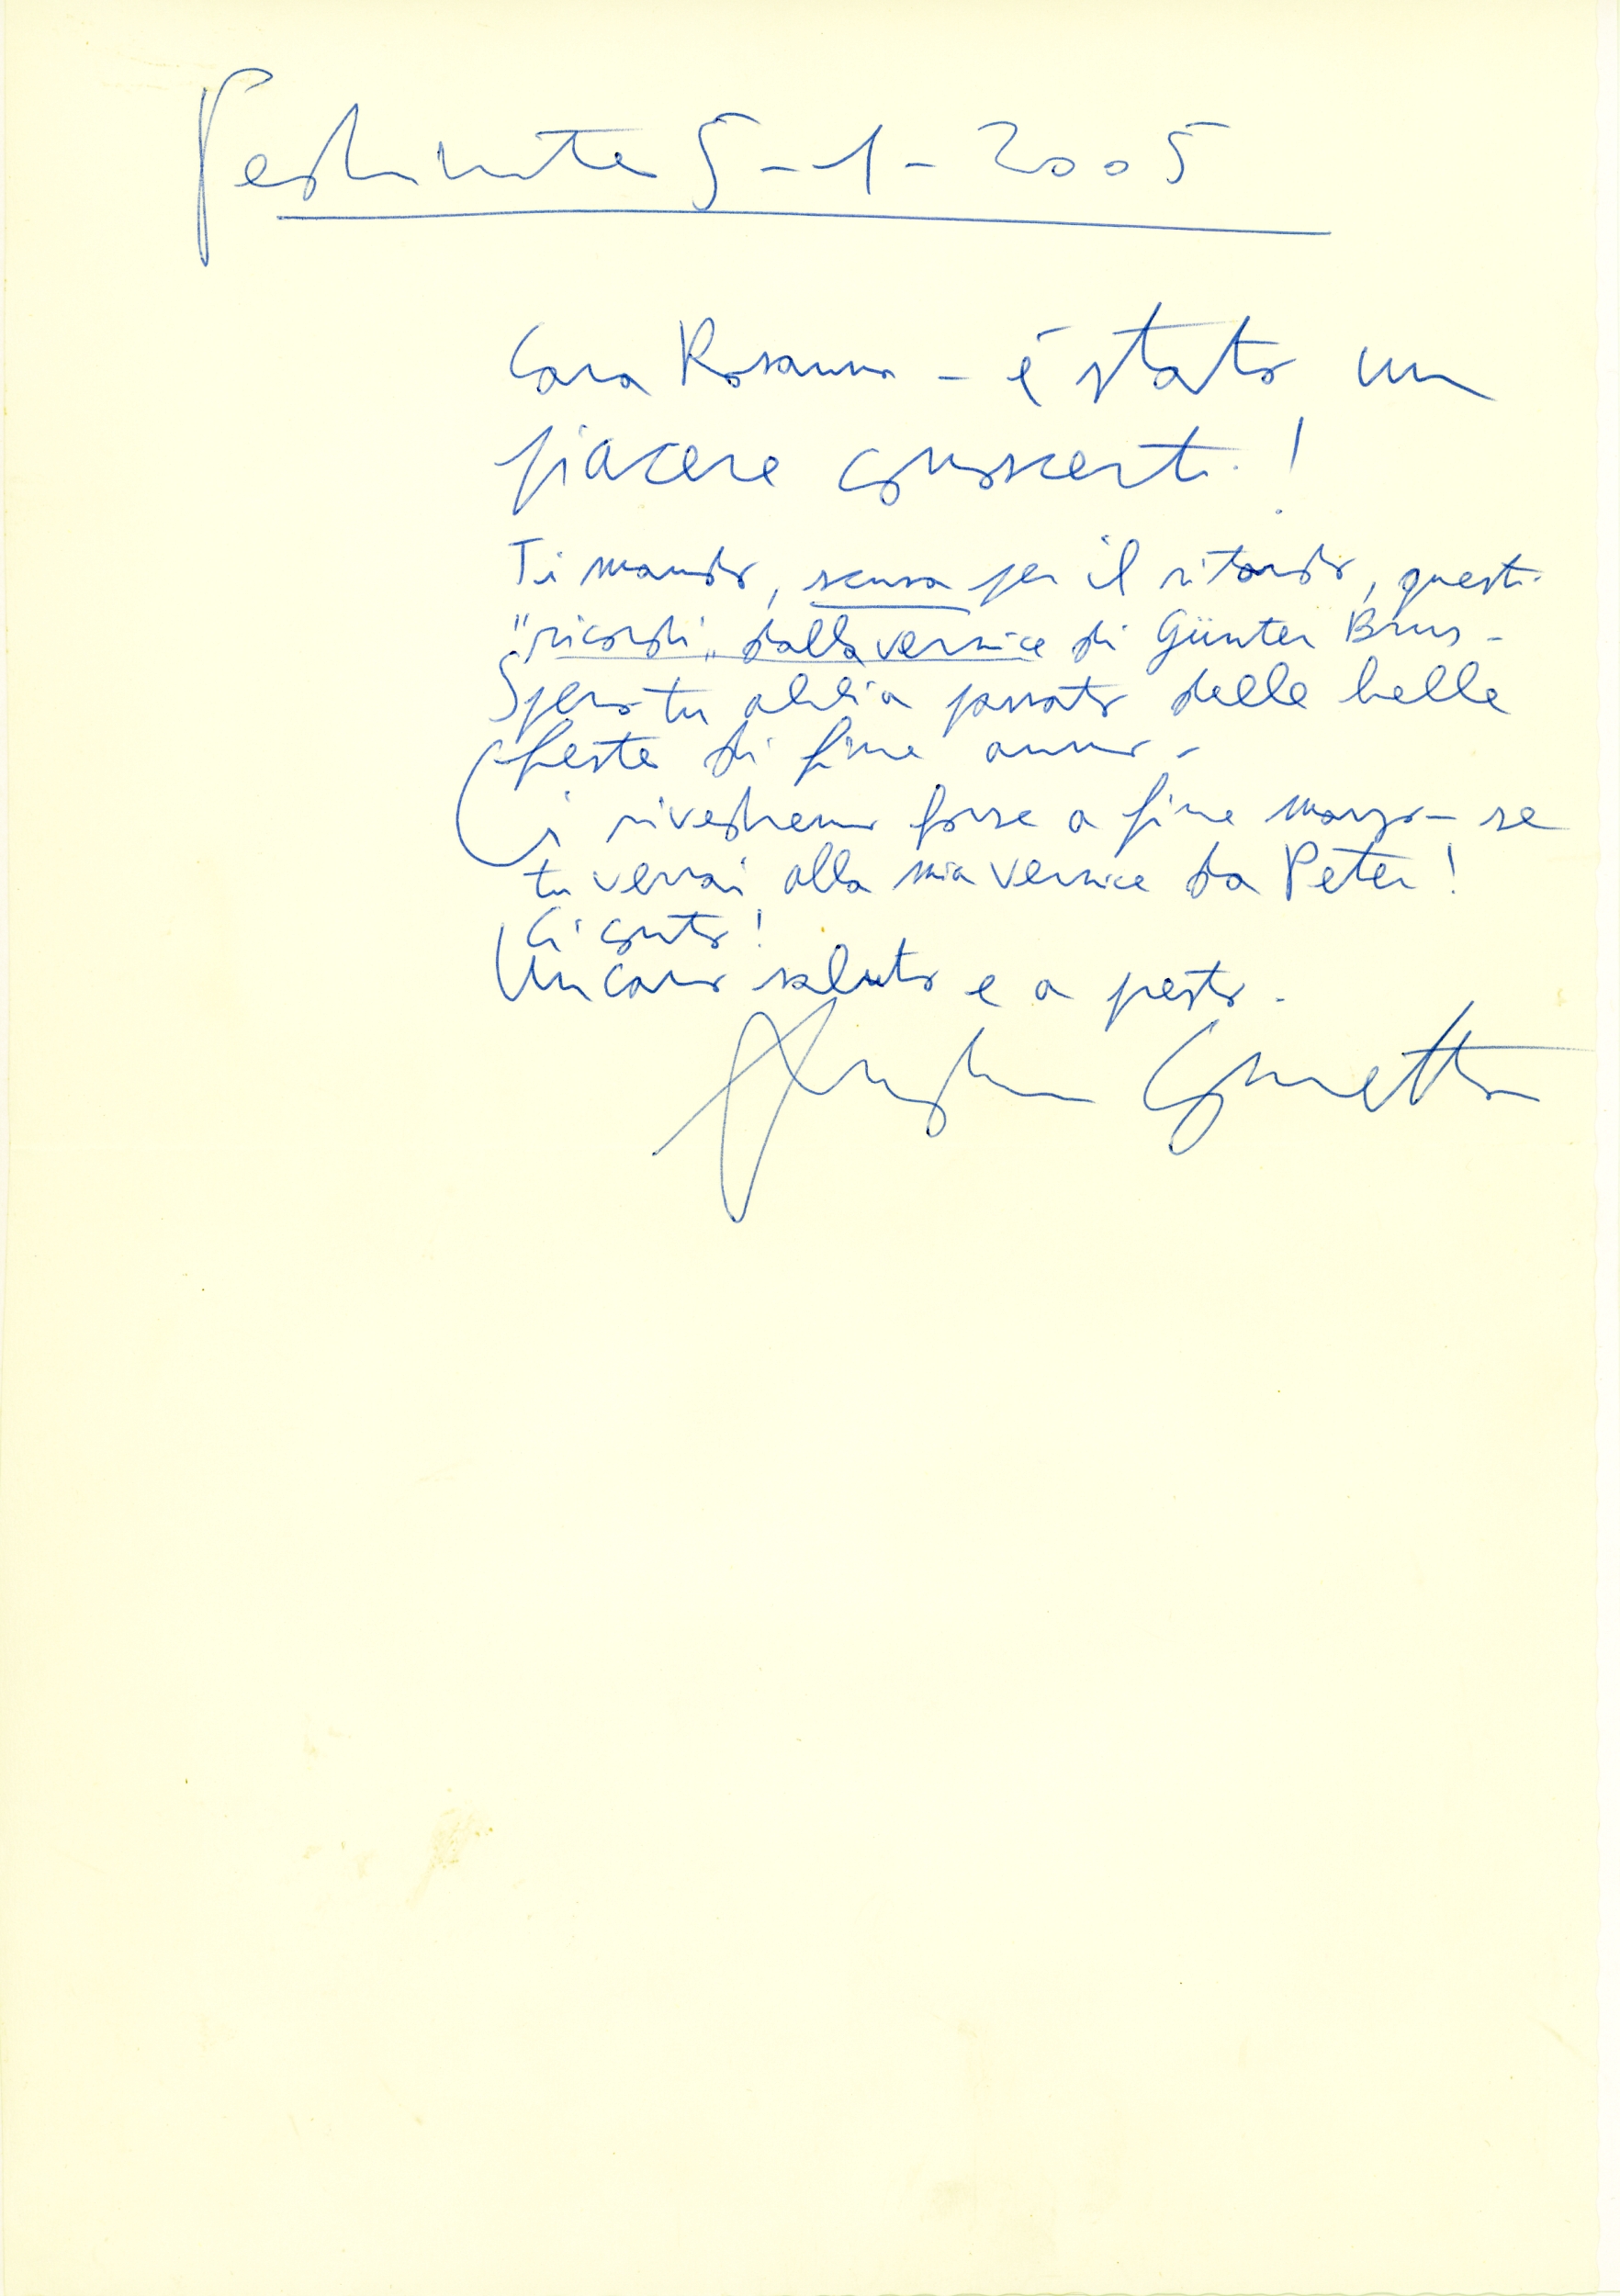 Pedinate 5-1-2005
Cara Rosanna - è stato un
piacere conoscerti!
Ti mando, scusa per il ritardo, questi
"ricordi" dalla vernice di Günter Brus -
Spero tu abbia passato delle belle
feste di fine anno -
Ci rivedremo forse a fine marzo - se
tu verrai alla mia vernice da Peter!
Ci conto!
Un caro saluto e a presto.